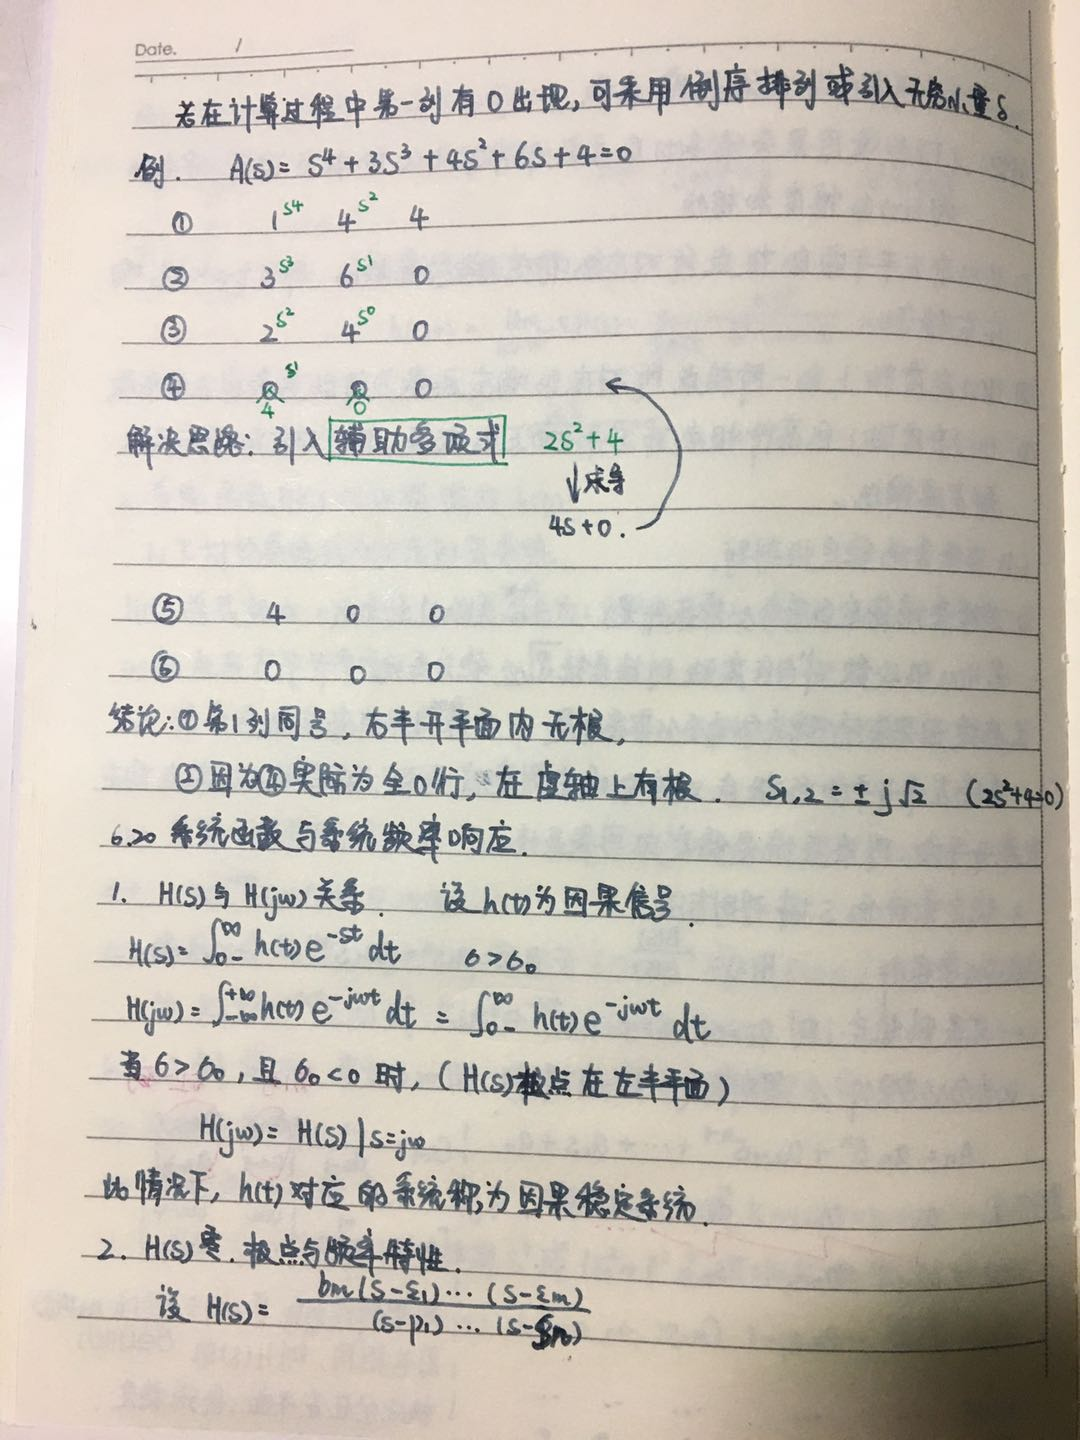 Date. /
若在计算过程中第一列有0出现,可采用倒序排列或引入无穷小量δ.
例. A(s)= S⁴+3S³+4S²+6S+4=0
① 1 S⁴ 4 S² 4
② 3 S³ 6 S¹ 0
③ 2 S² 4 S⁰ 0
④ S¹ 0
4 0
解决思路: 引入辅助多项式 2S²+4
↓求导
4S+0.
⑤ 4 0 0
⑥ 0 0 0
结论:①第1列同号,右半开平面内无根,
②因为④实际为全0行,在虚轴上有根. S₁,₂=±j√2 (2S²+4=0)
6.20 系统函数与系统频率响应.
1. H(s)与H(jω)关系. 设h(t)为因果信号.
H(s)=∫₀₋^∞ h(t)e^{-st} dt σ>σ₀
H(jω)=∫_{-∞}^{+∞} h(t)e^{-jωt} dt = ∫₀₋^∞ h(t)e^{-jωt} dt
当σ>σ₀,且σ₀<0时,(H(s)极点在左半平面)
H(jω)= H(s)|s=jω
此情况下,h(t)对应的系统称为因果稳定系统.
2. H(s)零.极点与频率特性.
设 H(s)= bm(S-ξ₁)⋯(S-ξm)
(s-p₁)⋯(s-)